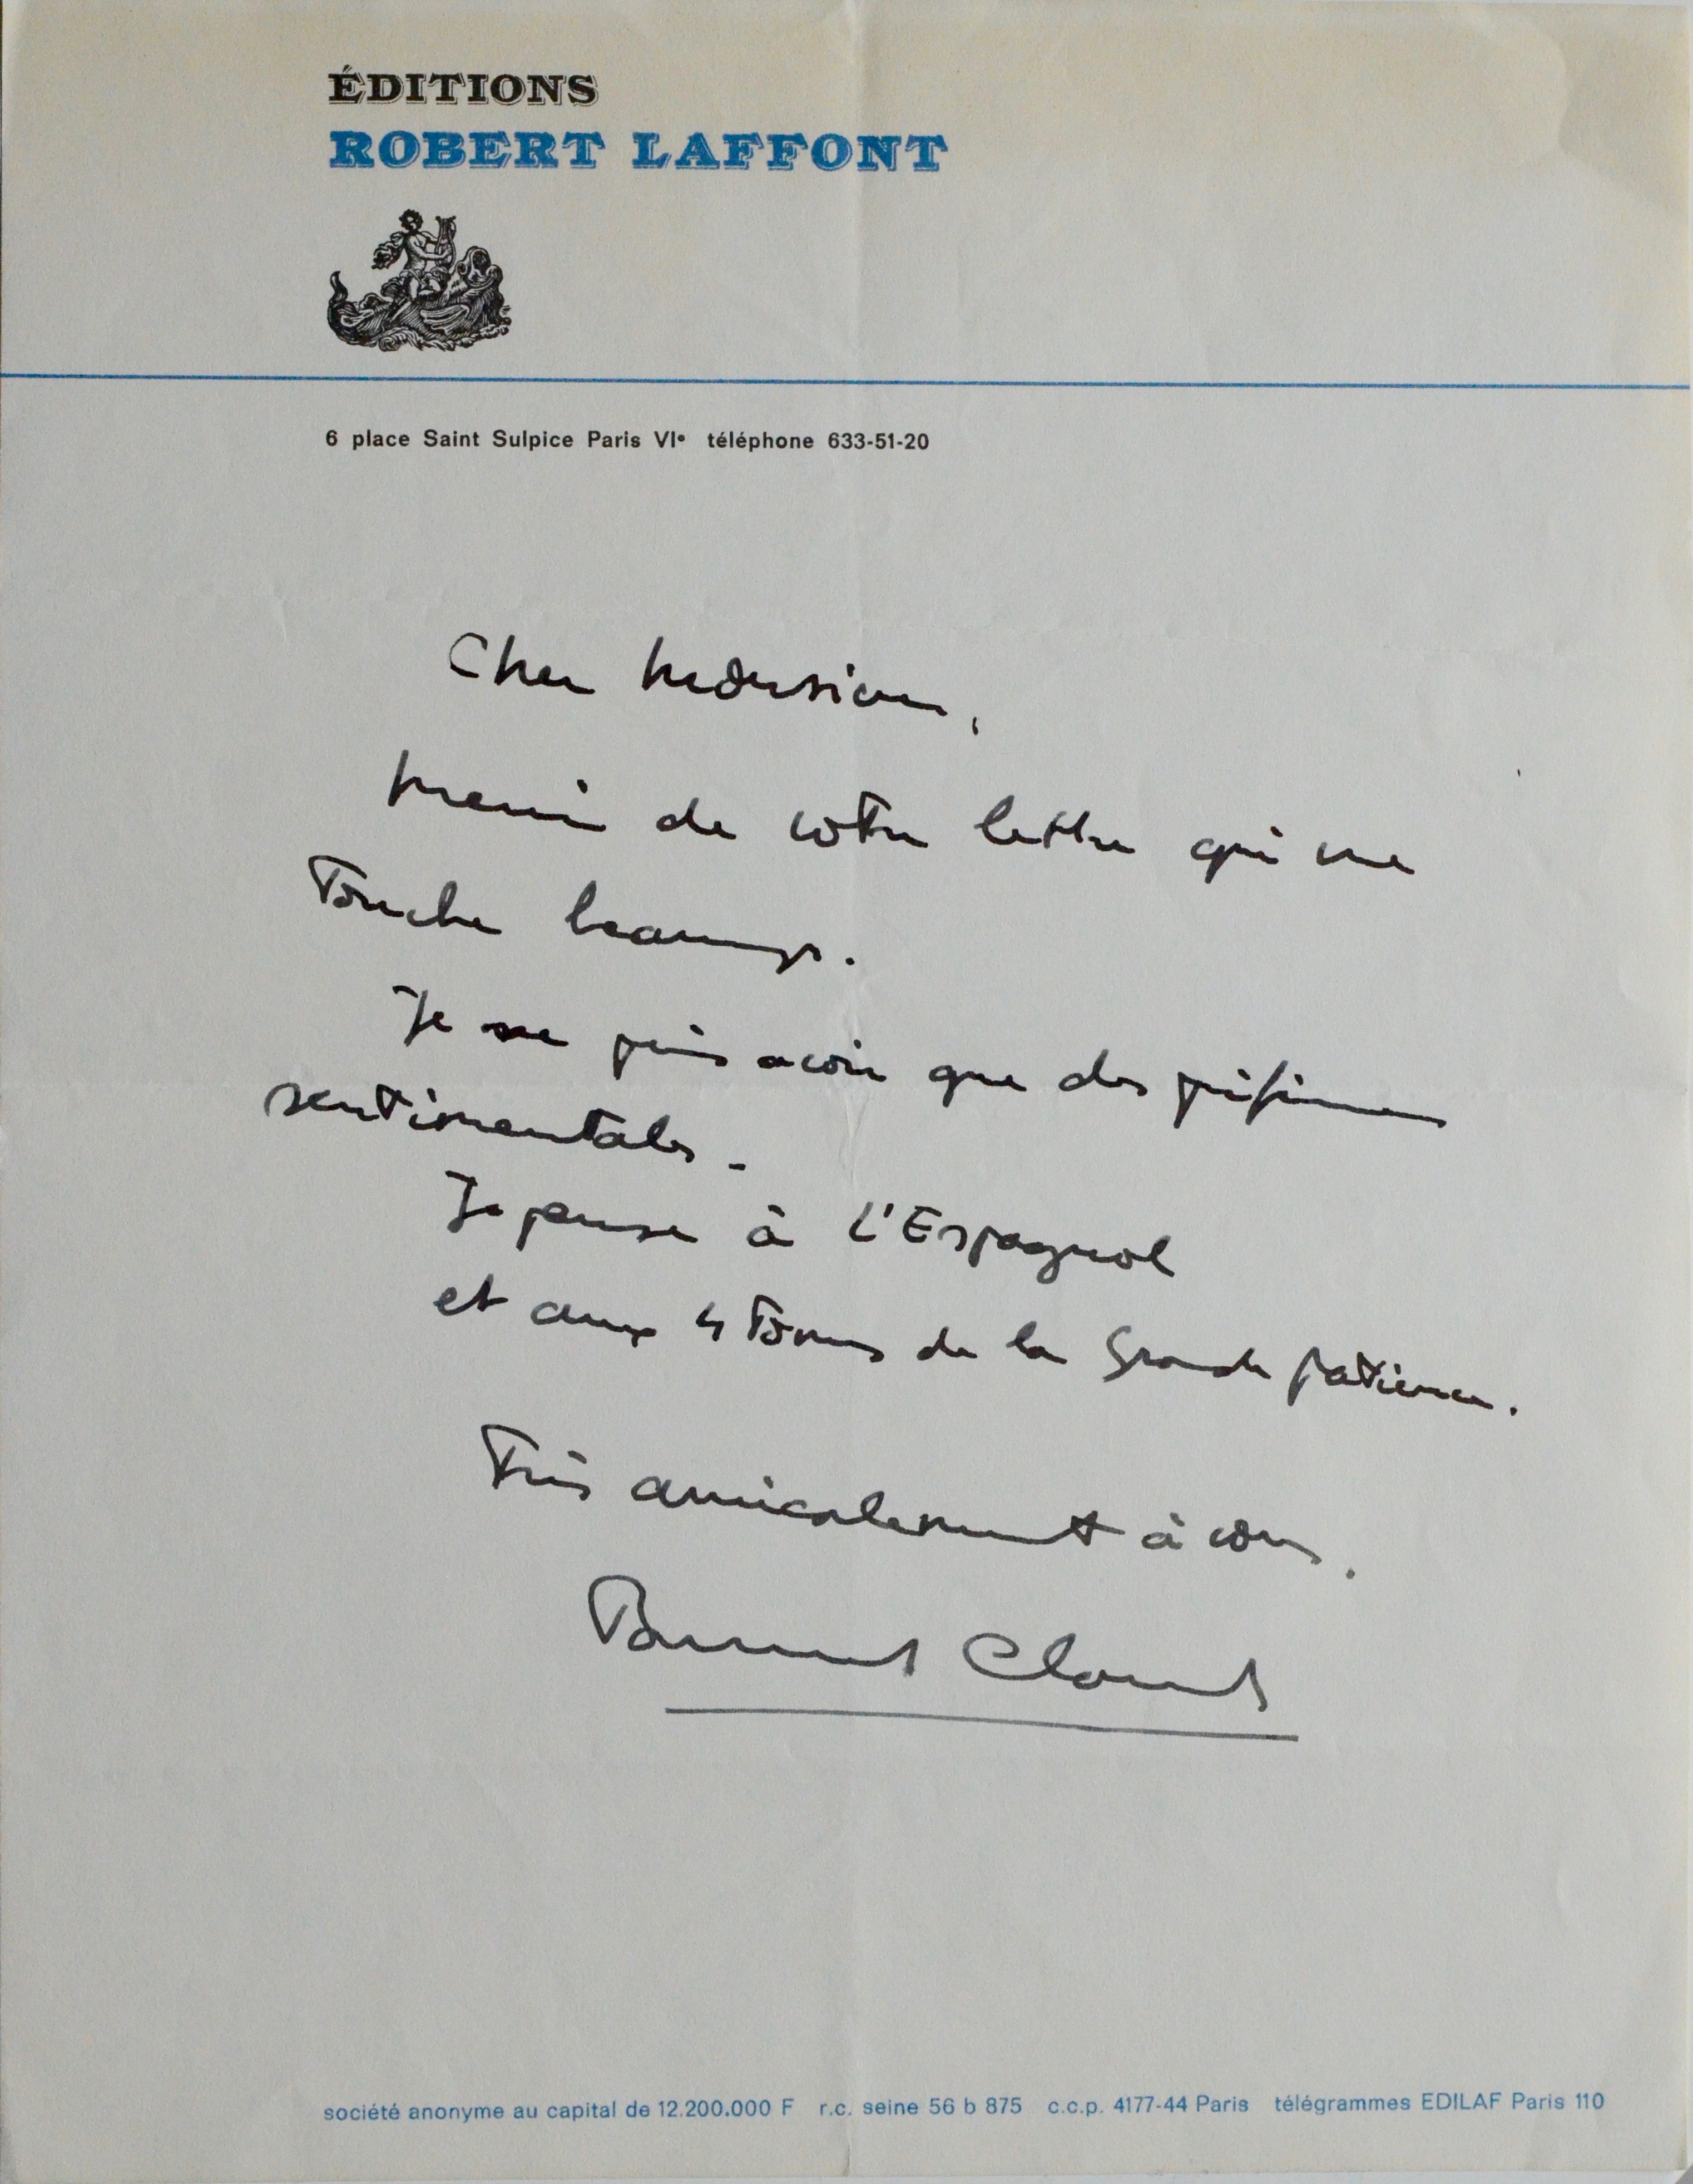 ÉDITIONS
ROBERT LAFFONT
6 place Saint Sulpice Paris VIe téléphone 633-51-20
Cher Monsieur,
merci de votre lettre qui me
touche beaucoup.
Je ne puis avoir que des préférences
sentimentales.
Je pense à L'Espagnol
et aux 4 tomes de la Grande patience.
Très amicalement à vous.
Bernard Clavel
société anonyme au capital de 12.200.000 F r.c. seine 56 b 875 c.c.p. 4177-44 Paris télégrammes EDILAF Paris 110